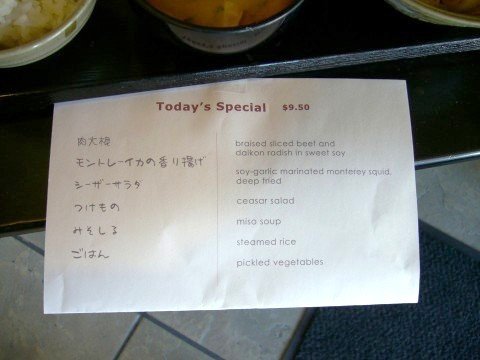 Today's Special $9.50
肉大根
モントレーイカの香り揚げ
シーザーサラダ
つけもの
みそしる
ごはん
braised sliced beef and
daikon radish in sweet soy
soy-garlic marinated monterey squid,
deep fried
ceasar salad
miso soup
steamed rice
pickled vegetables